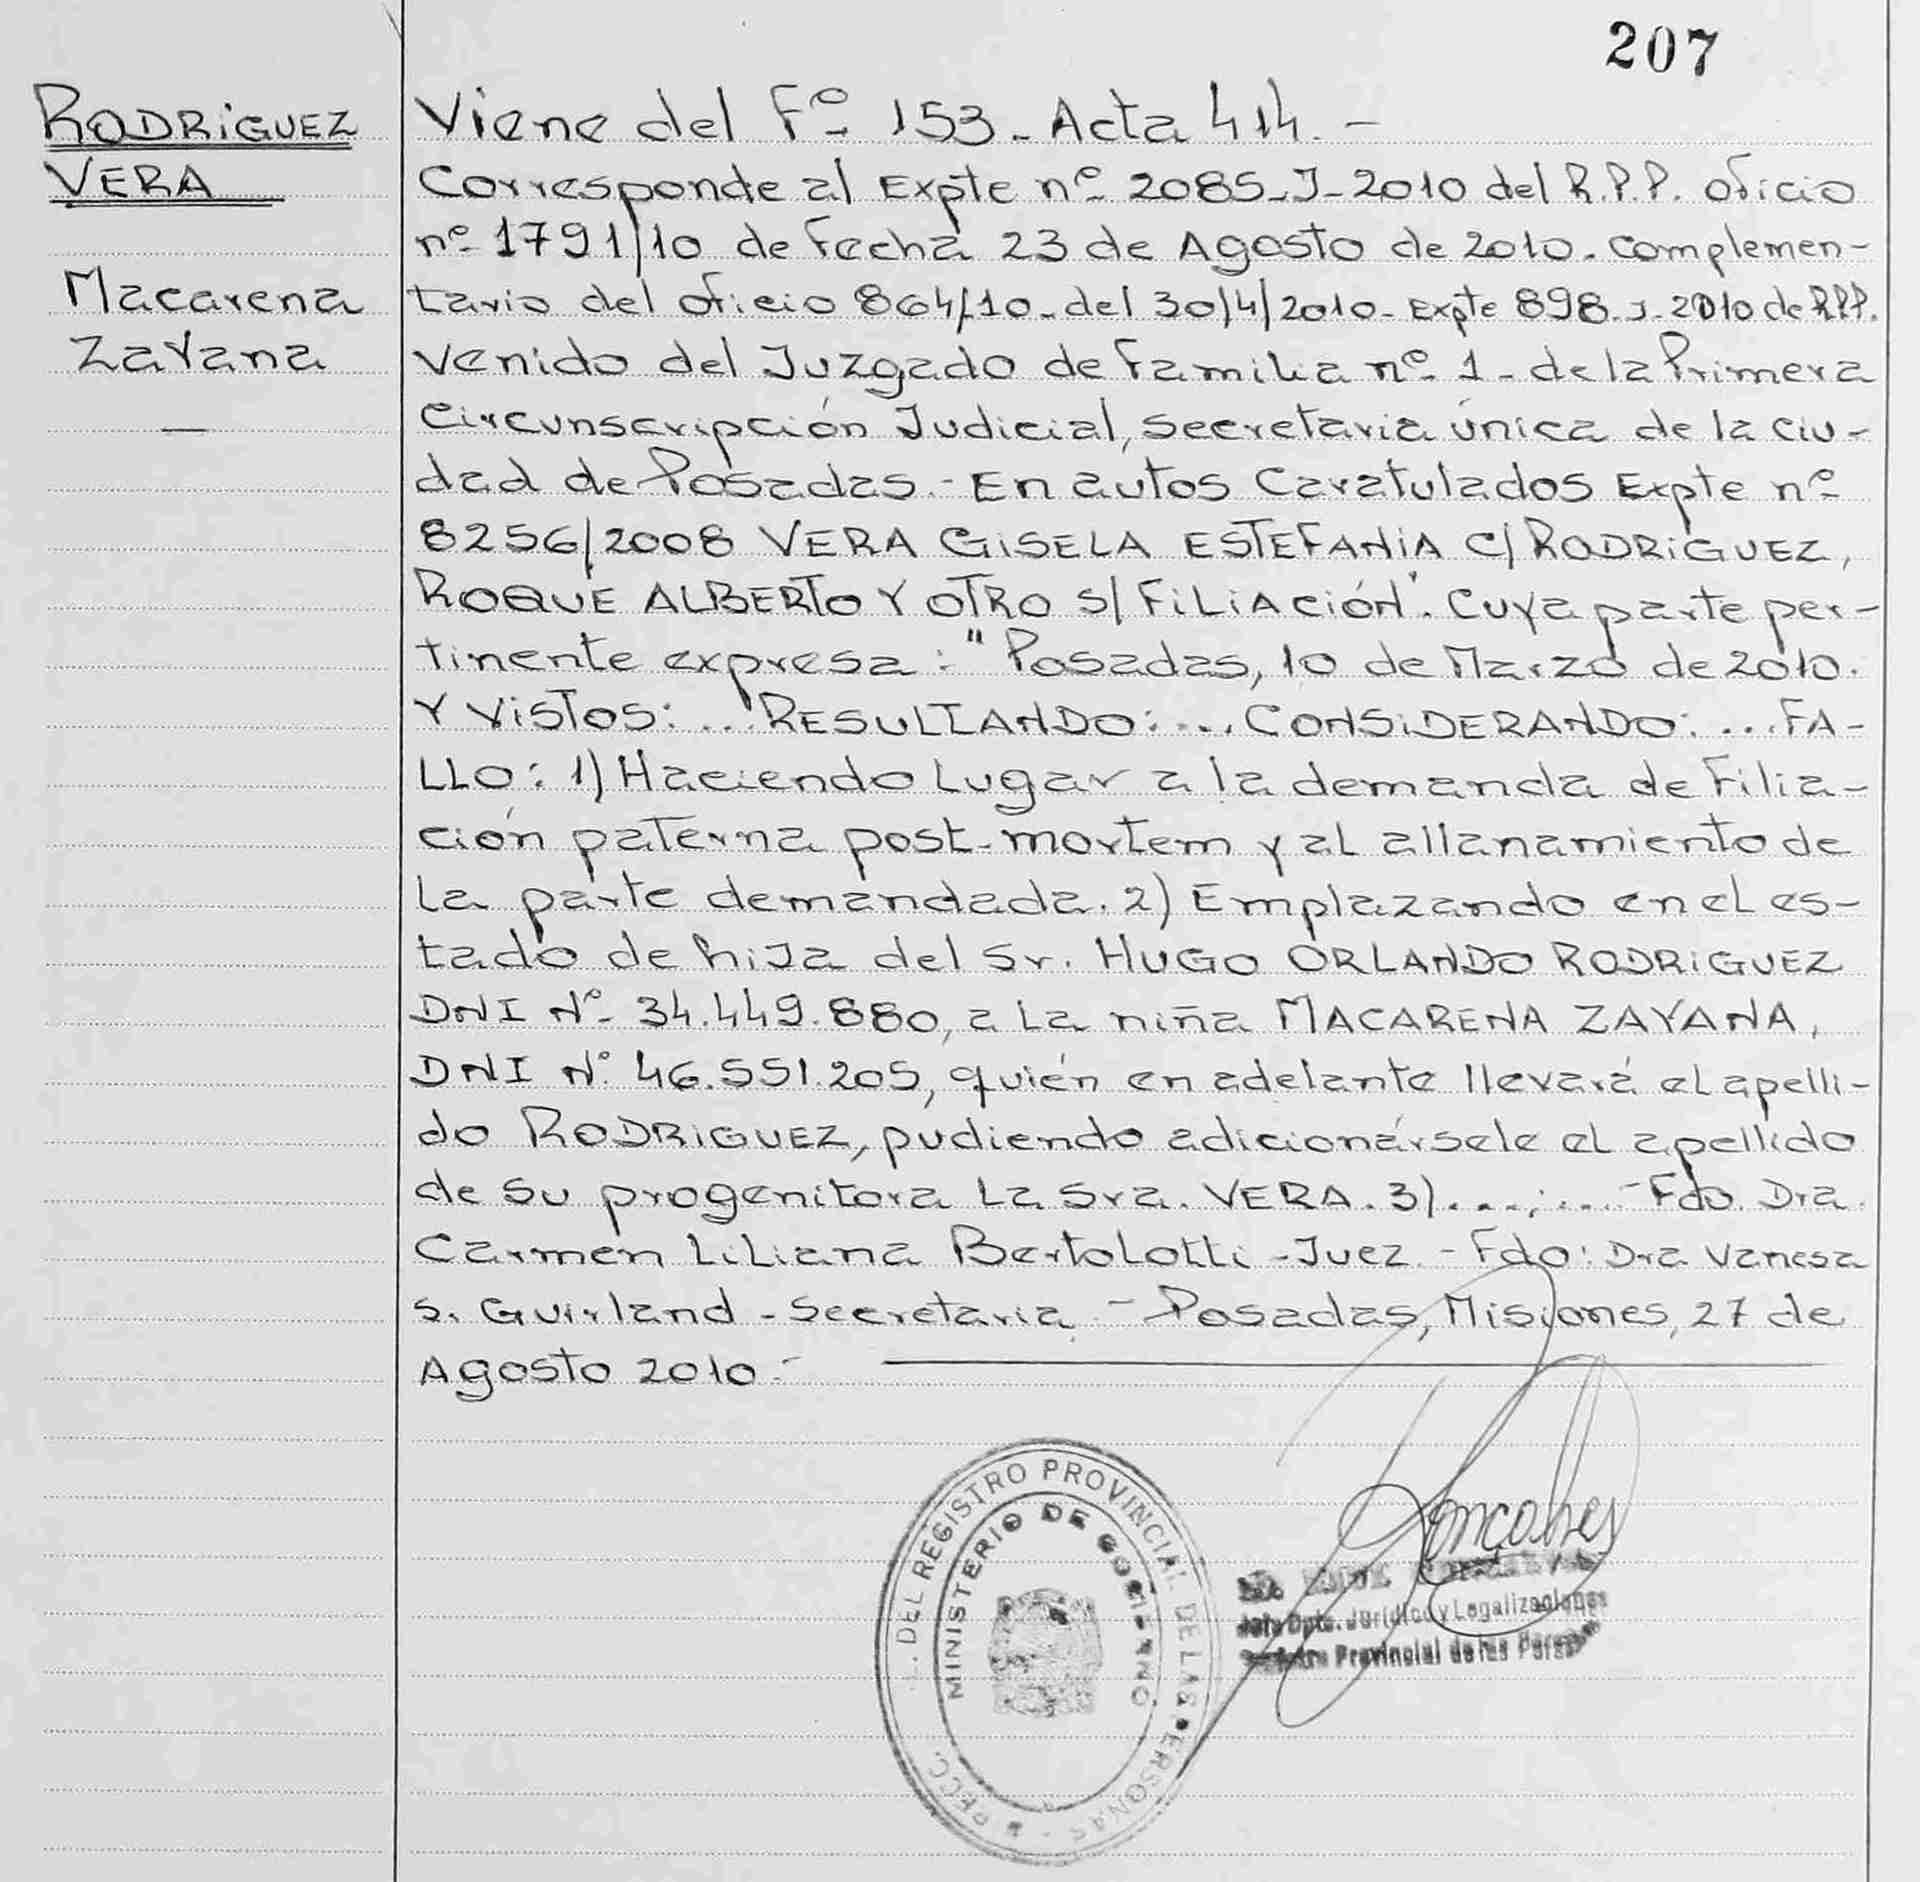 207
RODRIGUEZ
VERA
Macarena
Zayana
Viene del Fº 153 - Acta 414. -
Corresponde al Expte nº 2085-J-2010 del R.P.P. oficio
nº 1791/10 de fecha 23 de Agosto de 2010. complemen-
tario del oficio 864/10 - del 30/4/2010 - Expte 898-J-2010 de RPP.
venido del Juzgado de familia nº 1 - de la Primera
circunscripción Judicial, secretaria única de la ciu-
dad de Posadas. - En autos caratulados Expte nº
8256/2008 VERA GISELA ESTEFANIA C/ RODRIGUEZ,
ROQUE ALBERTO Y OTRO S/ FILIACIÓN". Cuya parte per-
tinente expresa: "Posadas, 10 de Marzo de 2010.
Y VISTOS: ... RESULTANDO: ... CONSIDERANDO: ... FA-
LLO: 1) Haciendo Lugar a la demanda de Filia-
ción paterna post-mortem y al allanamiento de
la parte demandada. 2) Emplazando en el es-
tado de hija del Sr. HUGO ORLANDO RODRIGUEZ
DNI Nº 34.449.880, a la niña MACARENA ZAYANA,
DNI Nº 46.551.205, quién en adelante llevará el apelli-
do RODRIGUEZ, pudiendo adicionársele el apellido
de su progenitora la Sra. VERA. 3) ...;... - Fdo. Dra.
Carmen Liliana Bertolotti - Juez. - Fdo: Dra Vanesa
S. Guirland - Secretaria. - Posadas, Misiones, 27 de
Agosto 2010. -
DEL REGISTRO PROVINCIAL DE LAS PERSONAS -
MINISTERIO DE GOBIERNO
Goncalves
Jefe Dpto. Jurídico y Legalizaciones
Provincial de las Personas